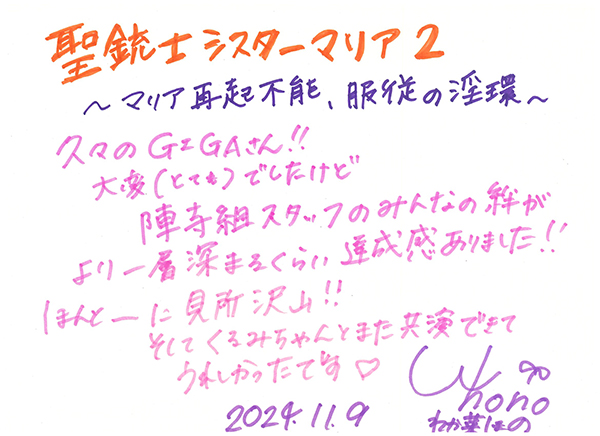 聖銃士シスターマリア2
～マリア再起不能、服従の淫環～
久々のGIGAさん!!
大変(とても)でしたけど
陣寺組スタッフのみんなの絆が
より一層深まるくらい達成感ありました!!
ほんとーに見所沢山!!
そしてくるみちゃんとまた共演できて
うれしかったです♡
nono
わか葉ほの
2024.11.9